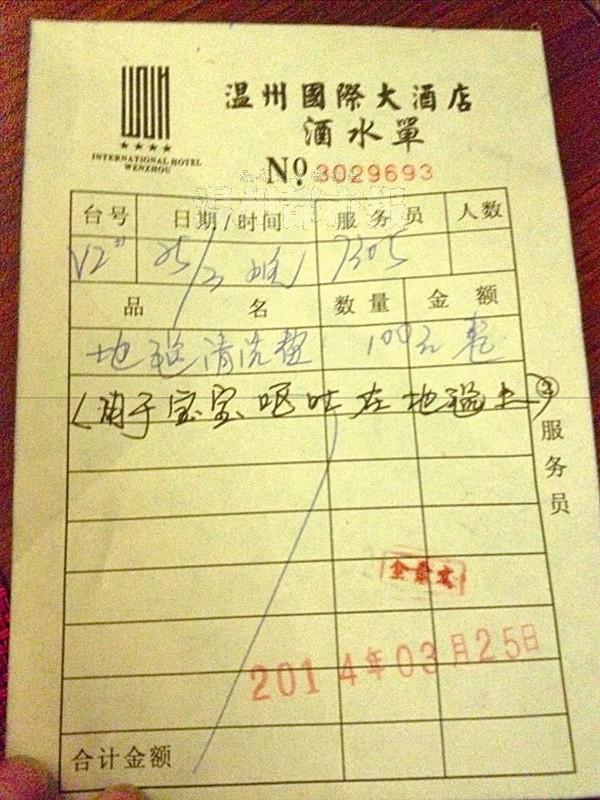 温州國際大酒店
酒水單
INTERNATIONAL HOTEL
WENZHOU
Nº 3029693
台号 日期/时间 服务员 人数
V2# 25/3 7305
品名 数量 金额
地毯清洗费 100元
(用于宝宝呕吐在地毯上)
②服务员
2014年03月25日
合计金额